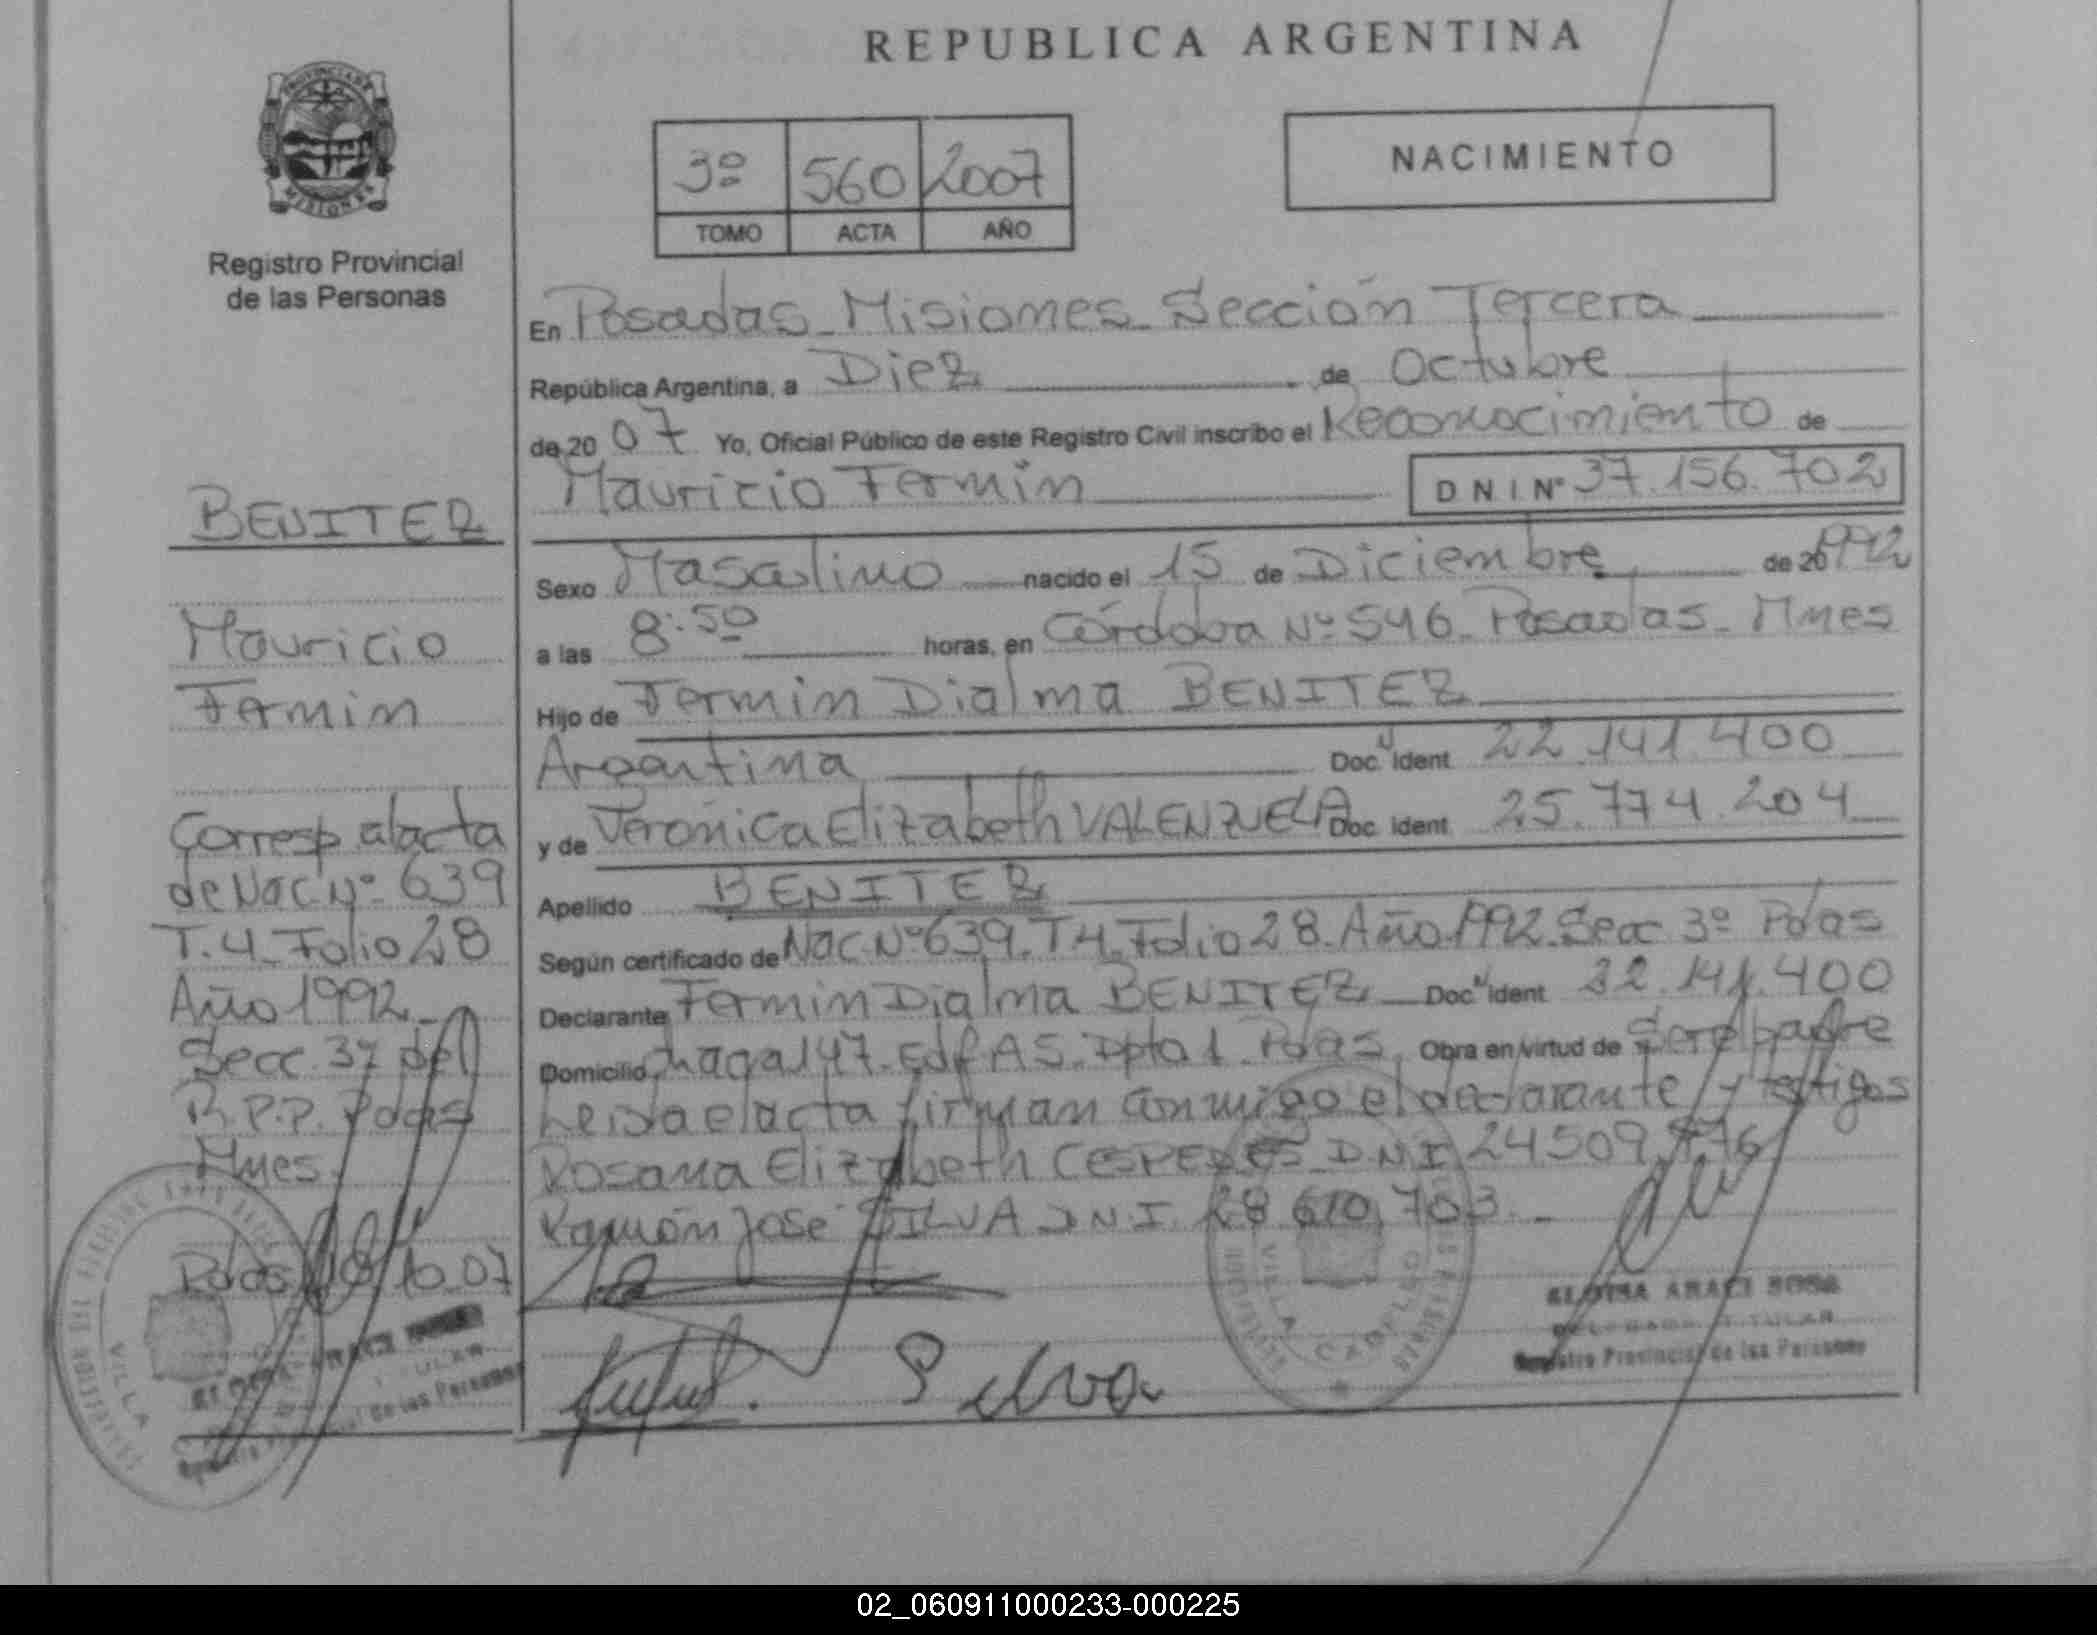 REPUBLICA ARGENTINA
PROVINCIA DE
MISIONES
Registro Provincial
de las Personas
3º 560 2007
TOMO ACTA AÑO
NACIMIENTO
En Posadas - Misiones - Sección Tercera
República Argentina, a Diez de Octubre
de 20 07 Yo, Oficial Público de este Registro Civil inscribo el Reconocimiento de
Mauricio Fermin D N I Nº 37.156.702
Sexo Masculino nacido el 15 de Diciembre de 20 1992
a las 8:50 horas, en Córdoba Nº 546 - Posadas - Mnes
Hijo de Fermin Dialma BENITEZ
Argentina Doc. Ident. 22.141.400
y de Verónica Elizabeth VALENZUELA Doc. Ident. 25.774.204
Apellido BENITEZ
Según certificado de Nac. Nº 639. T4. Folio 28. Año 1992. Secc 3º Pdas
Declarante Fermin Dialma BENITEZ Doc. Ident. 22.141.400
Domicilio chaga 147. Edf A5. Dpto 1. Pdas. Obra en virtud de Ser el padre
Leida el acta firman conmigo el declarante y testigos
Rosana Elizabeth CESPEDES D.N.I 24.509.
Ramón José SILVA D.N.I. 28.610.703.-
Silva
ELOISA ARACI SOSA
DELEGADA TITULAR
Registro Provincial de las Personas
BENITEZ
Mauricio
Fermin
Corresp al acta
de Nac. Nº 639
T. 4 - Folio 28
Año 1992 -
Secc. 3º del
R.P.P. Pdas
Mnes.
Pdas 10.07
VILLA
de las Personas
VILLA
02_060911000233-000225